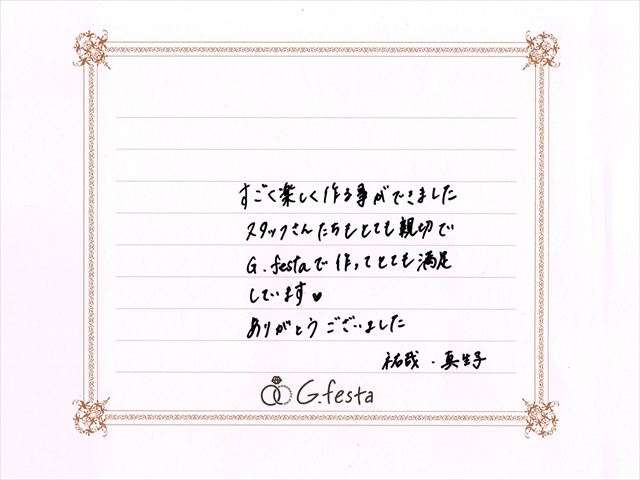 すごく楽しく作る事ができました
スタッフさんたちもとても親切で
G.festaで作ってとても満足
しています♥
ありがとうございました
祐哉・真生子
G.festa